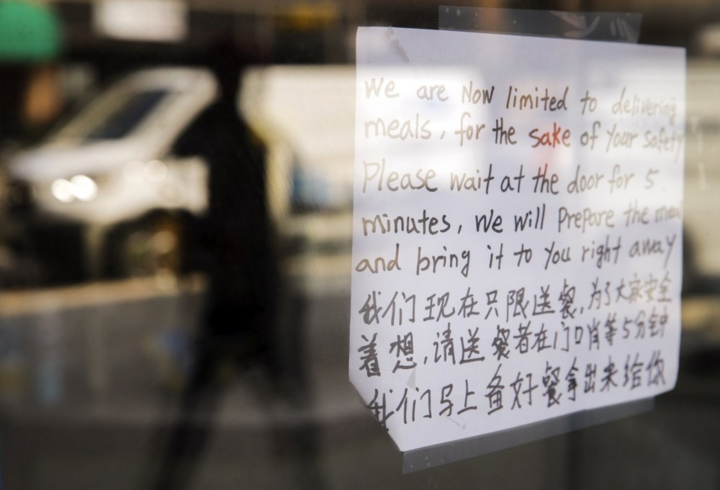 We are Now limited to delivering
meals, for the sake of Your safety
Please wait at the door for 5
minutes, We will Prepare the meal
and bring it to You right away
我们现在只限送餐,为了大家安全
着想,请送餐者在门口肖等5分钟
我们马上备好餐拿出来给你